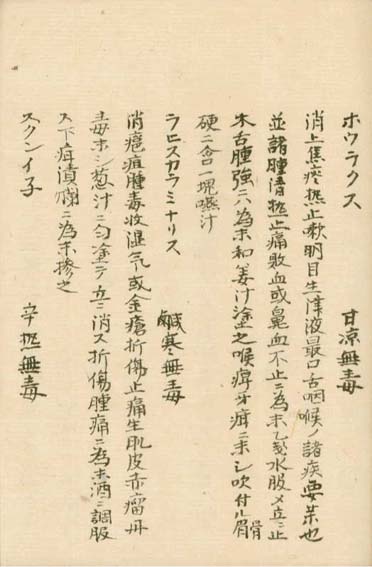 ホウラクス　甘凉無毒
消上焦痰熱止嗽明目生津液最口舌咽喉ノ諸疾要薬也
並諸腫清熱止痛敗血或鼻血不止ニ為末乙匁水服メ立ニ止
木舌腫強ニハ為末和姜汁塗之喉痺牙疳ニ末シ吹付ル骨
硬ニ含口一塊嚥汁
ラヒスカラミナリス　鹹寒無毒
消瘡疽腫毒收湿气或金瘡折傷止痛生肌皮赤瘤丹
毒ホシ葱汁ニ匀塗テ立ニ消ス折傷腫痛ニ為末酒ニ調服
ス下疳潰爛ニ為末摻之
スクンイ子　辛熱無毒